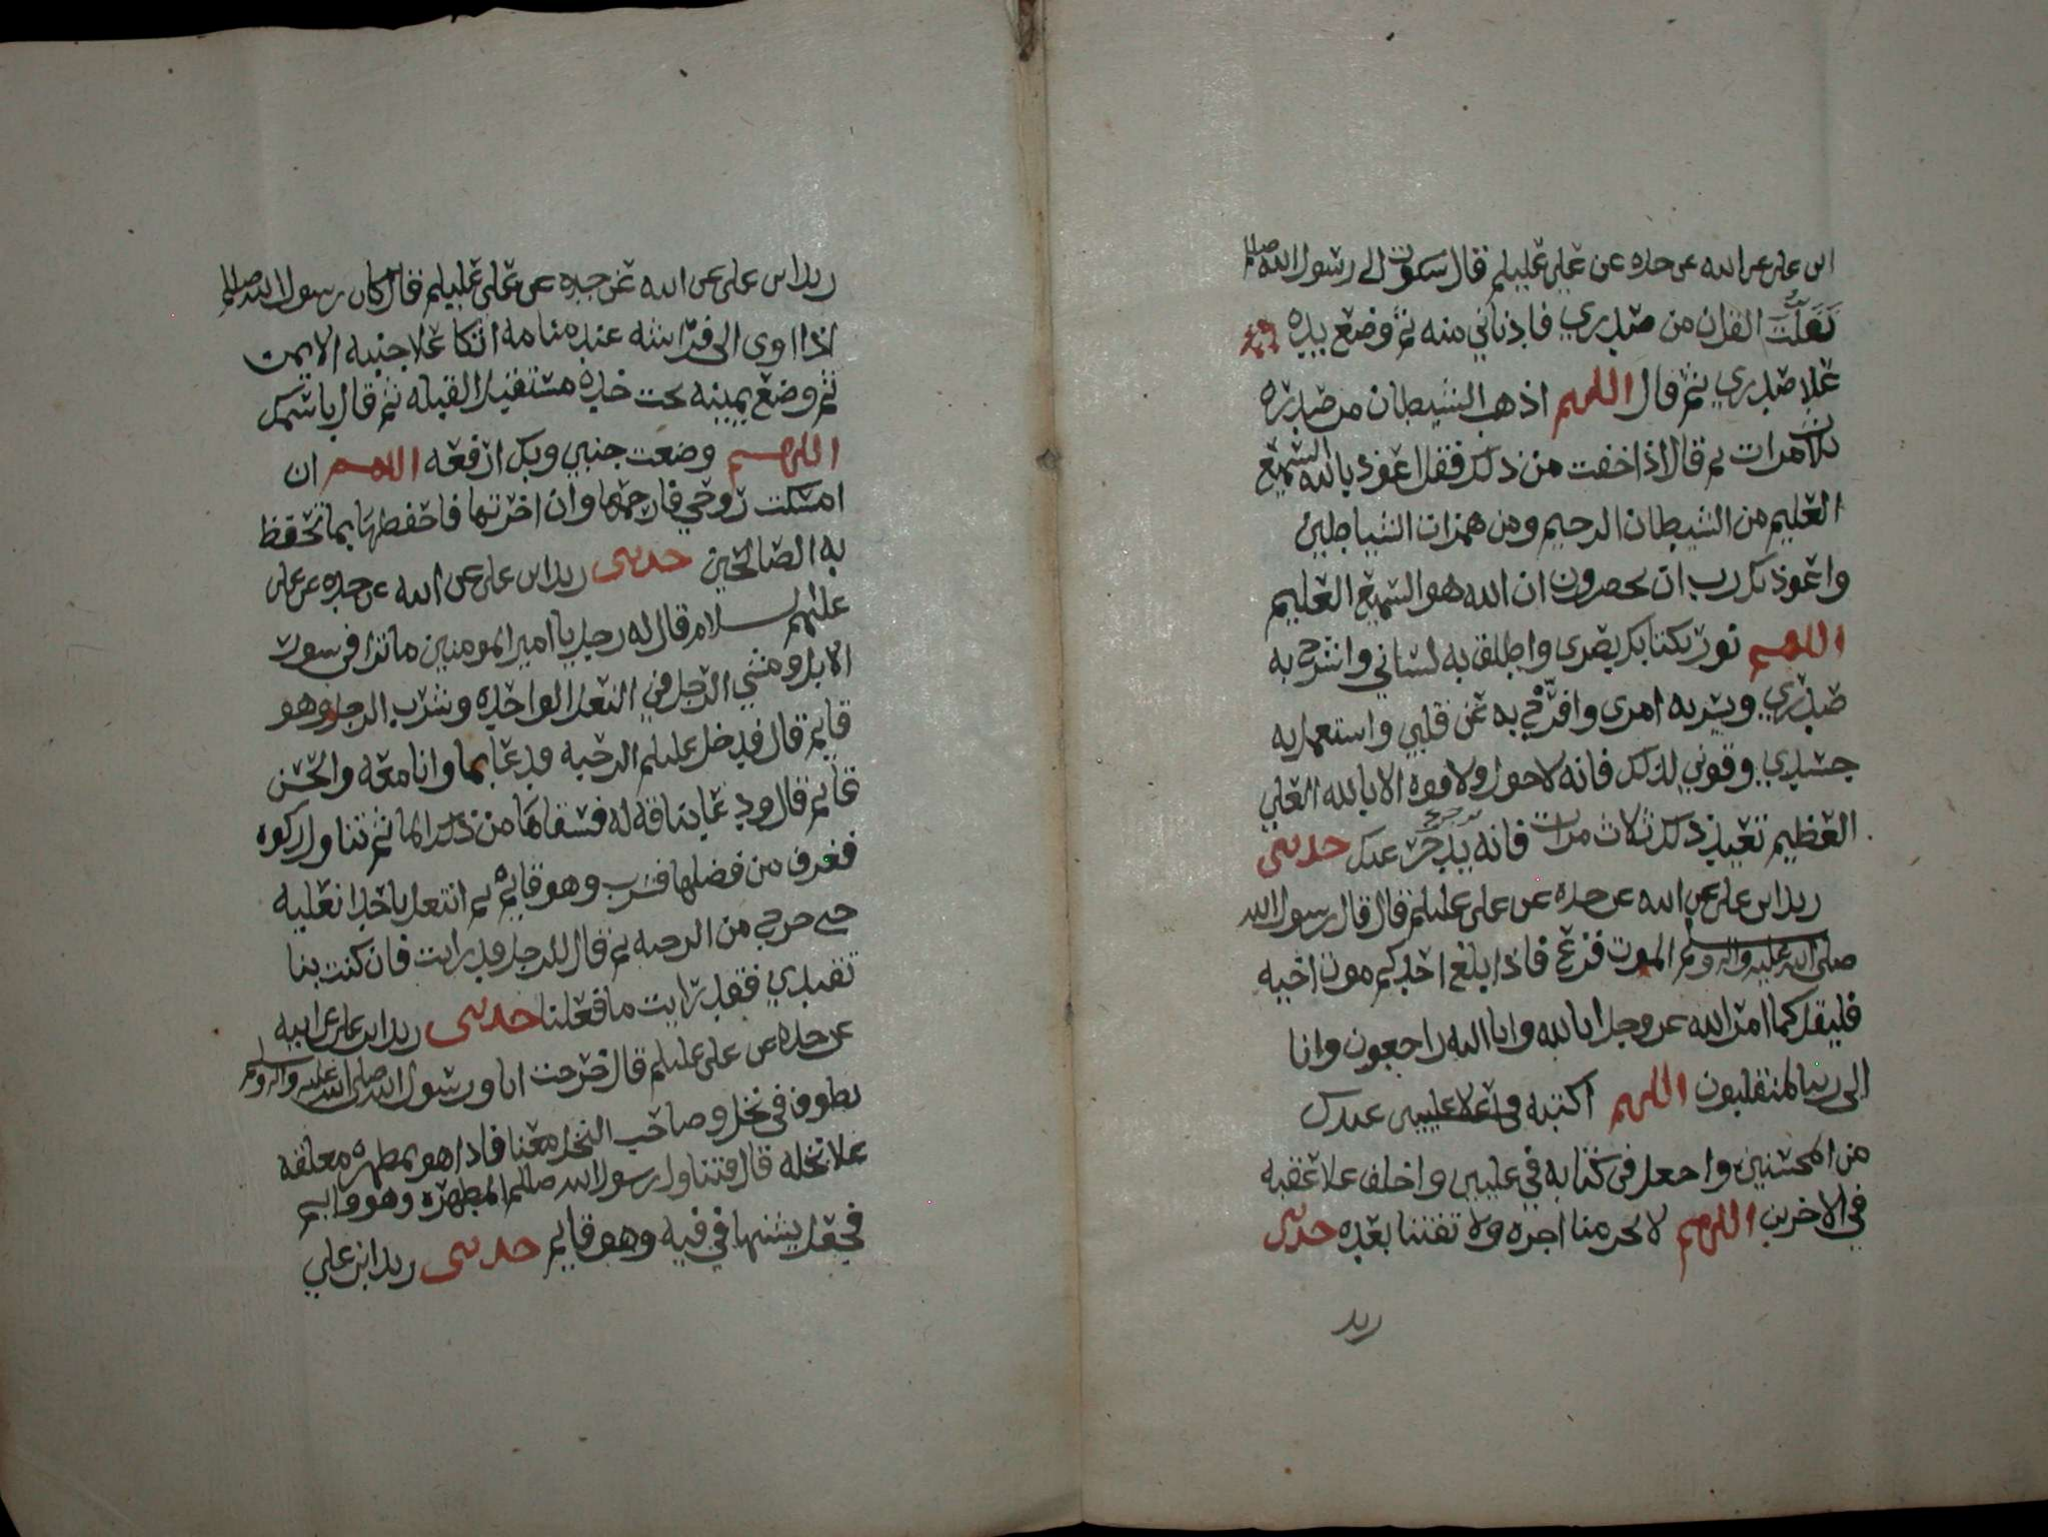 ابن علي عن ابيه عن جده عن علي عليلم قال شكوت الى رسول الله صللم
تفلت القران من صدري فادناني منه ثم وضع يده
علا صدري ثم قال اللهم اذهب الشيطان من صدره
ثلاث مرات ثم قال اذا خفت من ذلك فقل اعوذ بالله السميع
العليم من الشيطان الرجيم ومن همزات الشياطين
واعوذ بك رب ان يحضرون ان الله هو السميع العليم
اللهم نور بكتابك بصري واطلق به لساني واشرح به
صدري ويسر به امري وافرج به عن قلبي واستعمل به
جسدي وقوني لذلك فانه لا حول ولا قوه الا بالله العلي
العظيم تعيد ذلك ثلاث مرات فانه يزجر عنك حدثني
زيد ابن علي عن ابيه عن جده عن علي عليلم قال قال رسول الله
صلى الله عليه واله وسلم الموت فزع فاذا بلغ احدكم موت اخيه
فليقل كما امر الله عز وجل انا لله وانا اليه راجعون وانا
الى ربنا لمنقلبون اللهم اكتبه في علا عليين عندك
من المحسنين واجعل في كتابه في عليين واخلف علا عقبه
في الاخرين اللهم لا تحرمنا اجره ولا تفتنا بعده حدثني
زيد
زيد ابن علي عن ابيه عن جده عن علي عليلم قال كان رسول الله صللم
اذا اوى الى فراشه عند منامه اتكا علا جنبه الايمن
ثم وضع يمينه تحت خده مستقبل القبله ثم قال باسمك
اللهم وضعت جنبي وبك ارفعه اللهم ان
امسكت روحي فارحمها وان اخرتها فاحفظها بما تحفظ
به الصالحين حدثني زيد ابن علي عن ابيه عن جده عن علي
عليهم السلام قال له رجل يا امير المومنين ما ترا في سور
الابل ومشي الرجل في النعل الواحده وشرب الرجل وهو
قايم قال فدخل عليلم الرحبه ودعا بما وانا معه والحسن
قايم قال ودعا بناقه له فسقاها من ذلك الما ثم تناول ركوه
فغرف من فضلها فشرب وهو قايم ثم انتعل باحدا نعليه
حتى خرج من الرحبه ثم قال للرجل قد رايت فان كنت بنا
تقتدي فقد رايت ما فعلنا حدثني زيد ابن علي عن ابيه
عن جده عن علي عليلم قال خرجت انا ورسول الله صلى الله عليه واله وسلم
نطوف في نخل وصاحب النخل معنا فاذا هو بمطهره معلقه
علا نخله قال فتناول رسول الله صللم المطهره وهو قايم
فجعل يشنها في فيه وهو قايم حدثني زيد ابن علي